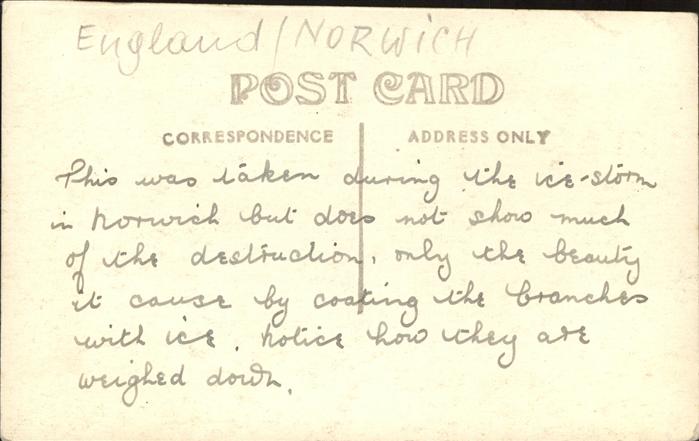 England/NORWICH
POST CARD
CORRESPONDENCE ADDRESS ONLY
This was taken during the ice-storm
in Norwich but does not show much
of the destruction, only the beauty
it cause by coating the branches
with ice. Notice how they are
weighed down.